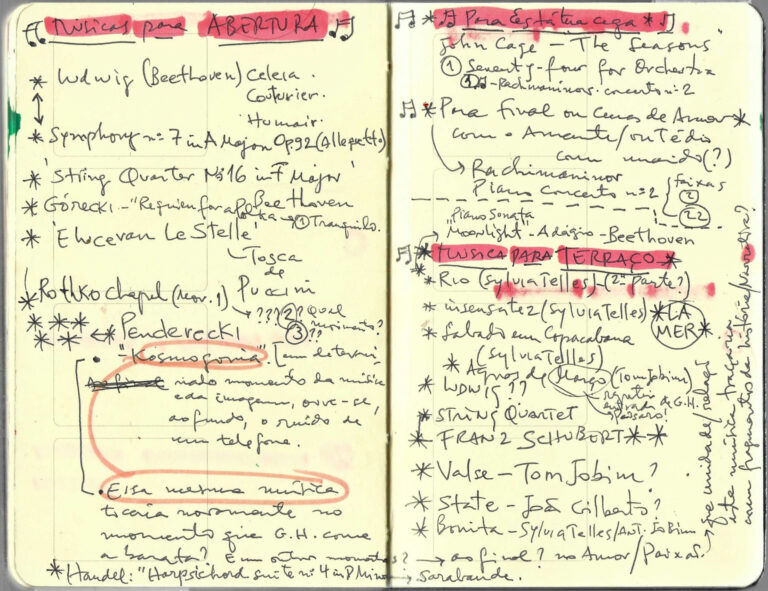 Músicas para ABERTURA
* Ludwig (Beethoven) Celeia.
Couturier.
Humair.
* Symphony nº 7 in A Major Op 92 (Allegretto)
* 'String Quarter Nº 16 in F Major'
Beethoven
* Górecki - "Requiem for a Polka → ① Tranquilo.
* 'E lucevan Le Stelle'
Tosca
de
Puccini
* Rothko Chapel (Mov. 1)
→ ???? Qual
movimento?
③ ??
*** ** ← Penderecki
• "Kosmogonia". [em determi-
nado momento da música
e da imagem, ouve-se,
ao fundo, o ruído de
um telefone.
• Essa mesma música
tocaria novamente no
momento que G.H. come
a barata? E em outros momentos?
* Handel: "Harpsichord suite nº 4 in D Minor → Sarabande.
* Para Estátua cega *
John Cage - "The Seasons"
① Seventy-four for Orchestra
① Rachmaninov. concerto nº 2
* Para final ou cenas de Amor *
com o Amante / ou Tédio
com marido (?)
→ Rachmaninov
Piano Concerto nº 2
faixas
②
22
"Piano Sonata
"Moonlight" - Adágio - Beethoven
* MÚSICA PARA TERRAÇO *
* Rio (Sylvia Telles) - (2ª Parte?)
* insensatez (Sylvia Telles)
* LA
MER *
* Sábado em Copacabana
(Sylvia Telles)
* Águas de Março (Tom Jobim)
→ repetir
entrada de G.H.
* LUDWIG ??
* STRING QUARTET
* FRANZ SCHUBERT **
* Valse - Tom Jobim?
* State - João Gilberto?
* Bonita - Sylvia Telles/Ant. Jobim
→ ao final? no Amor/Paixão.
que unidade/relação
esta música traçaria
com fragmentos da história/Narrativa?